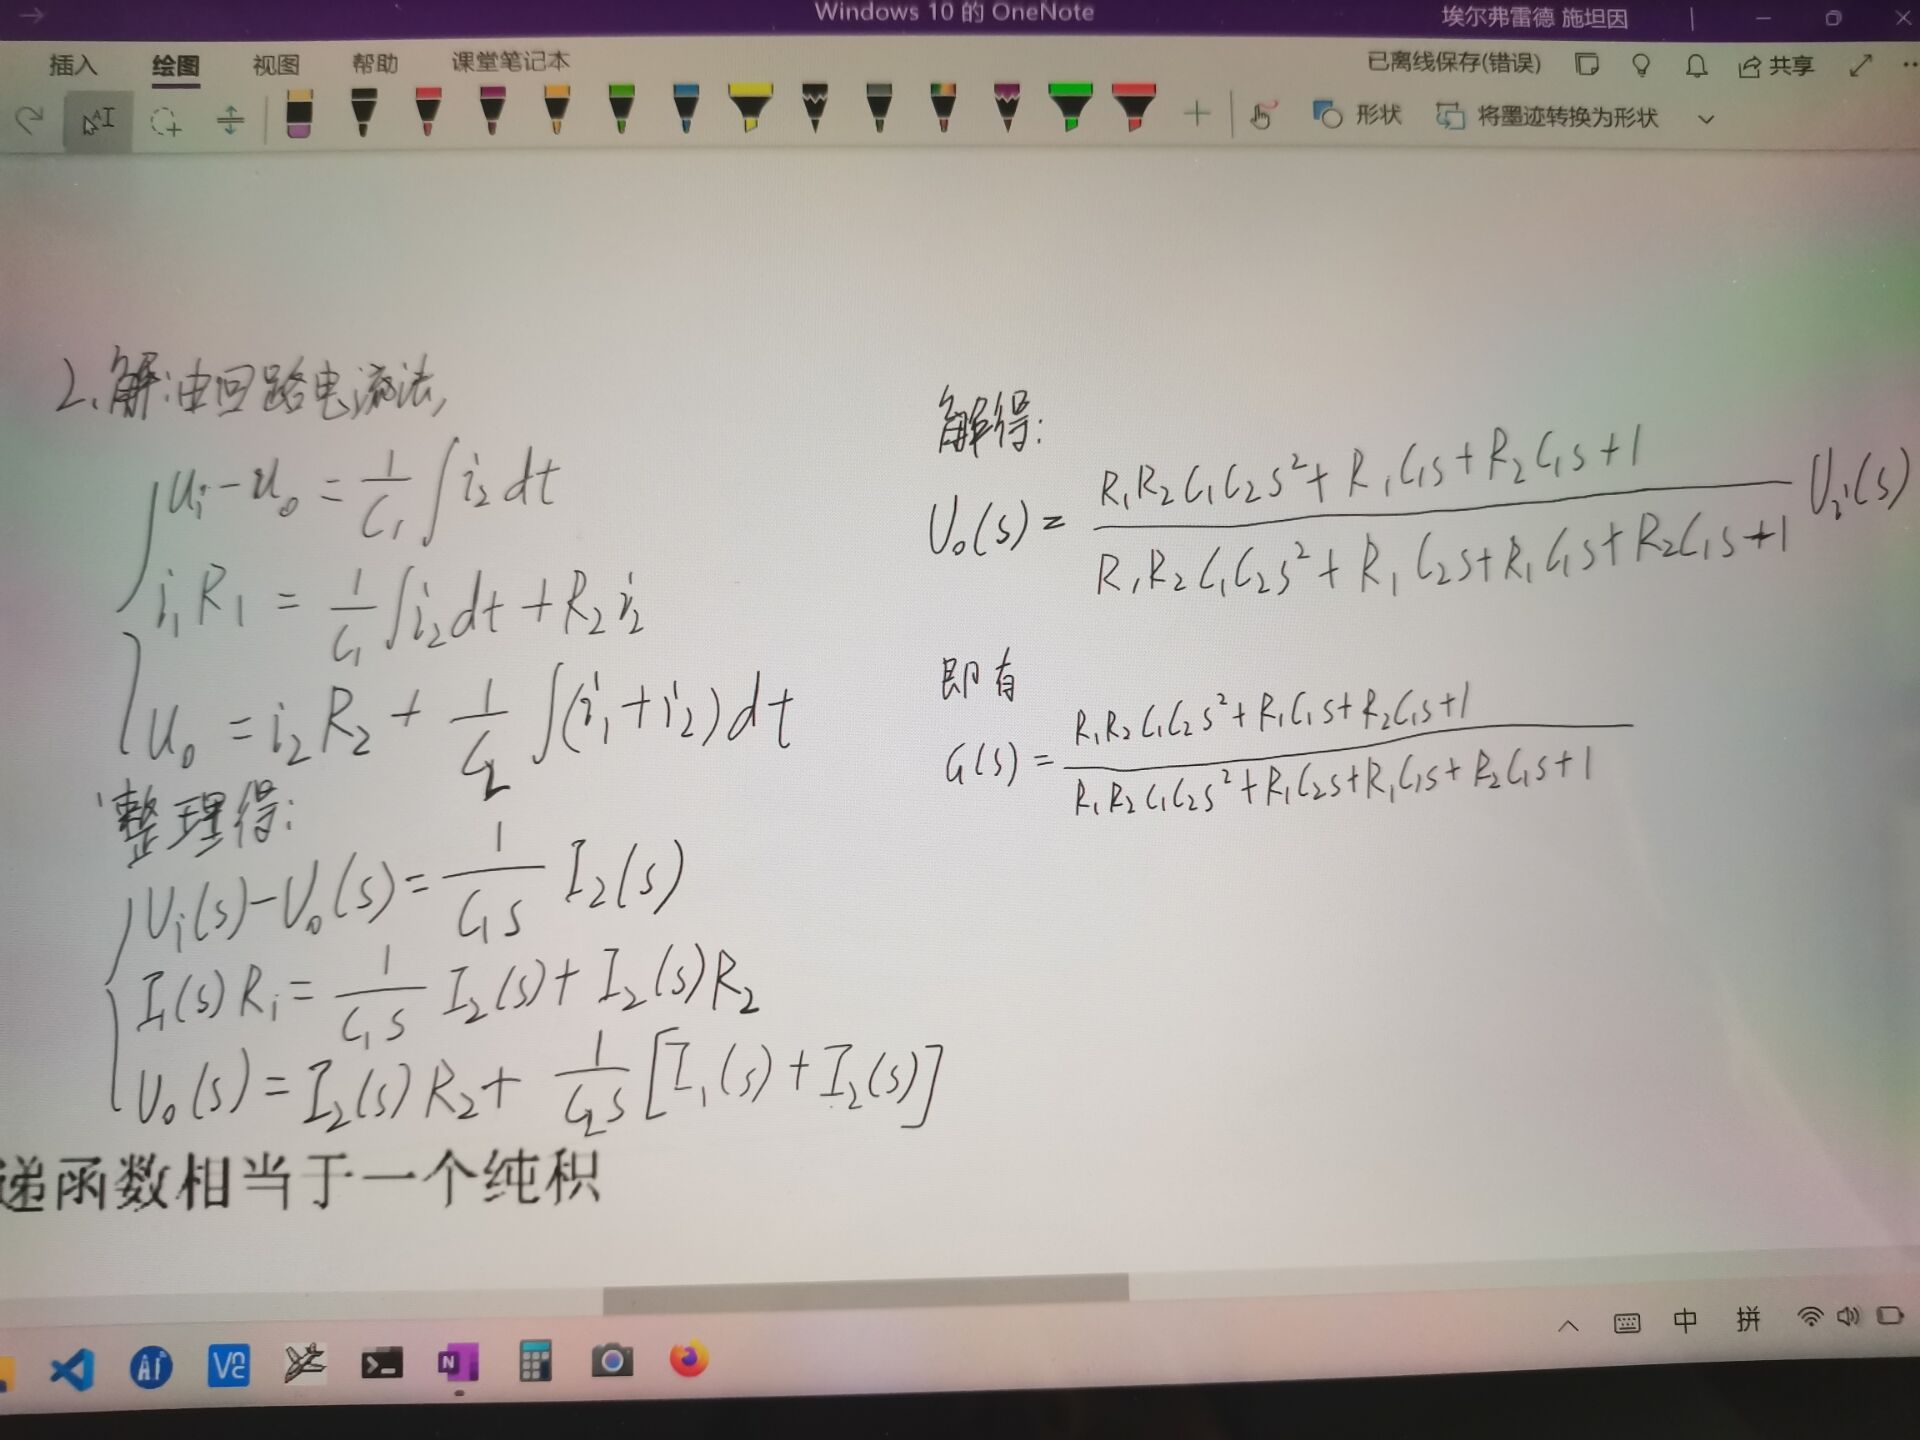 Windows 10 的 OneNote
埃尔弗雷德 施坦因
插入 绘图 视图 帮助 课堂笔记本
已离线保存(错误) 共享
形状 将墨迹转换为形状
2、解:由回路电流法,
u_i - u_o = 1/C_1 ∫ i_2 dt
i_1 R_1 = 1/C_1 ∫ i_2 dt + R_2 i_2
u_o = i_2 R_2 + 1/C_2 ∫ (i_1 + i_2) dt
整理得:
U_i(s) - U_o(s) = 1/(C_1 s) I_2(s)
I_1(s) R_1 = 1/(C_1 s) I_2(s) + I_2(s) R_2
U_o(s) = I_2(s) R_2 + 1/(C_2 s) [I_1(s) + I_2(s)]
递函数相当于一个纯积
解得:
U_o(s) = (R_1 R_2 C_1 C_2 s² + R_1 C_1 s + R_2 C_1 s + 1)/(R_1 R_2 C_1 C_2 s² + R_1 C_2 s + R_1 C_1 s + R_2 C_1 s + 1) U_i(s)
即有
G(s) = (R_1 R_2 C_1 C_2 s² + R_1 C_1 s + R_2 C_1 s + 1)/(R_1 R_2 C_1 C_2 s² + R_1 C_2 s + R_1 C_1 s + R_2 C_1 s + 1)
中 拼